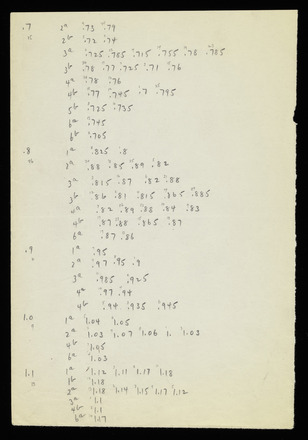 .7 2a .73 .79
2b .72 .74
3a .725 .705 .715 .755 .78 .785
3b .78 .77 .725 .71 .76
4a .78 .76
4b .77 .745 .7 .795
5b .725 .735
6a .745
6b .705
.8 1a .825 .8
2a .88 .85 .89 .82
3a .815 .87 .82 .88
3b .86 .81 .815 .865 .885
4a .82 .89 .88 .84 .83
4b .87 .88 .865 .87
6a .87 .86
.9 1a .95
2a .97 .95 .9
3a .985 .925
4a .97 .94
4b .94 .935 .945
1.0 1a 1.04 1.05
2a 1.03 1.07 1.06 1. 1.03
4b 1.05
6a 1.03
1.1 1a 1.12 1.11 1.13 1.18
1b 1.18
2a 1.18 1.14 1.15 1.17 1.12
3a 1.1
4b 1.1
6a 1.17